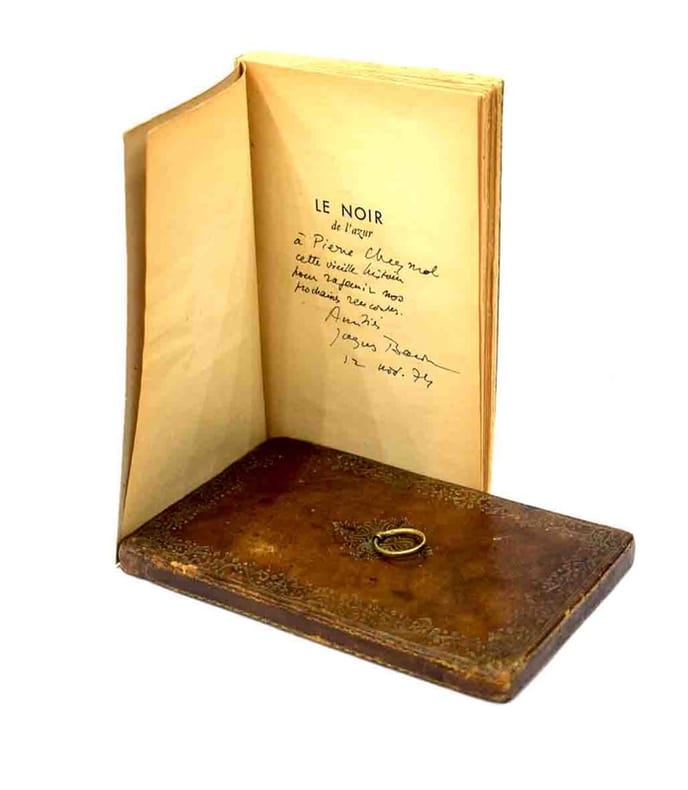 LE NOIR
de l'azur
à Pierre Cheymol
cette vieille histoire
pour rajeunir nos
prochaines rencontres.
Amitiés
Jacques Baron
12 nov. 74